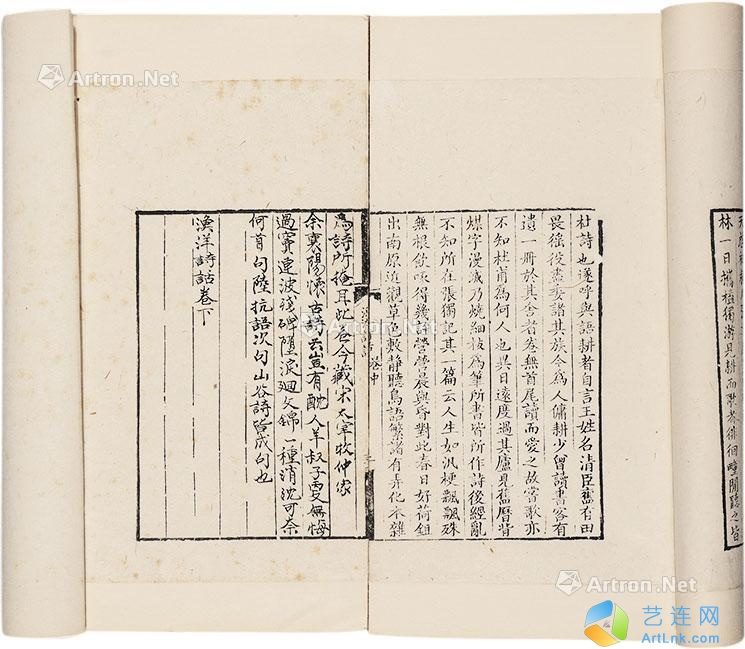 林一日携榼獨游見耕而歌者徘徊壟間聽之皆
杜詩也遂呼與語耕者自言王姓名清臣舊有田
畏徭役盡委諸其族今為人傭耕少曾讀書客有
遺一冊於其舍者卷無首尾讀而愛之故嘗歌亦
不知杜甫為何人也異日遠度過其廬見舊曆背
煤字漫滅乃燒細枝為筆所書皆所作詩後經亂
不知所在張獨記其一篇云人生如汎梗飄飄殊
無根飲啄得幾許營營晨與昏對此春日好荷鉏
出南原近觀草色敷静聽鳥語繁諸有弄化本雜
卷中
為詩所掩耳此卷今藏宋太宰牧仲家
余襄陽懷古詩云豈有酖人羊叔子更無悔
過竇連波殘碑墮淚迴文錦一種消沈可奈
何首句陸抗語次句山谷詩皆成句也
漁洋詩話卷下
Artron.Net
Artron.Net
Artron.Net
Artron.Net
艺连网
ArtLnk.Com